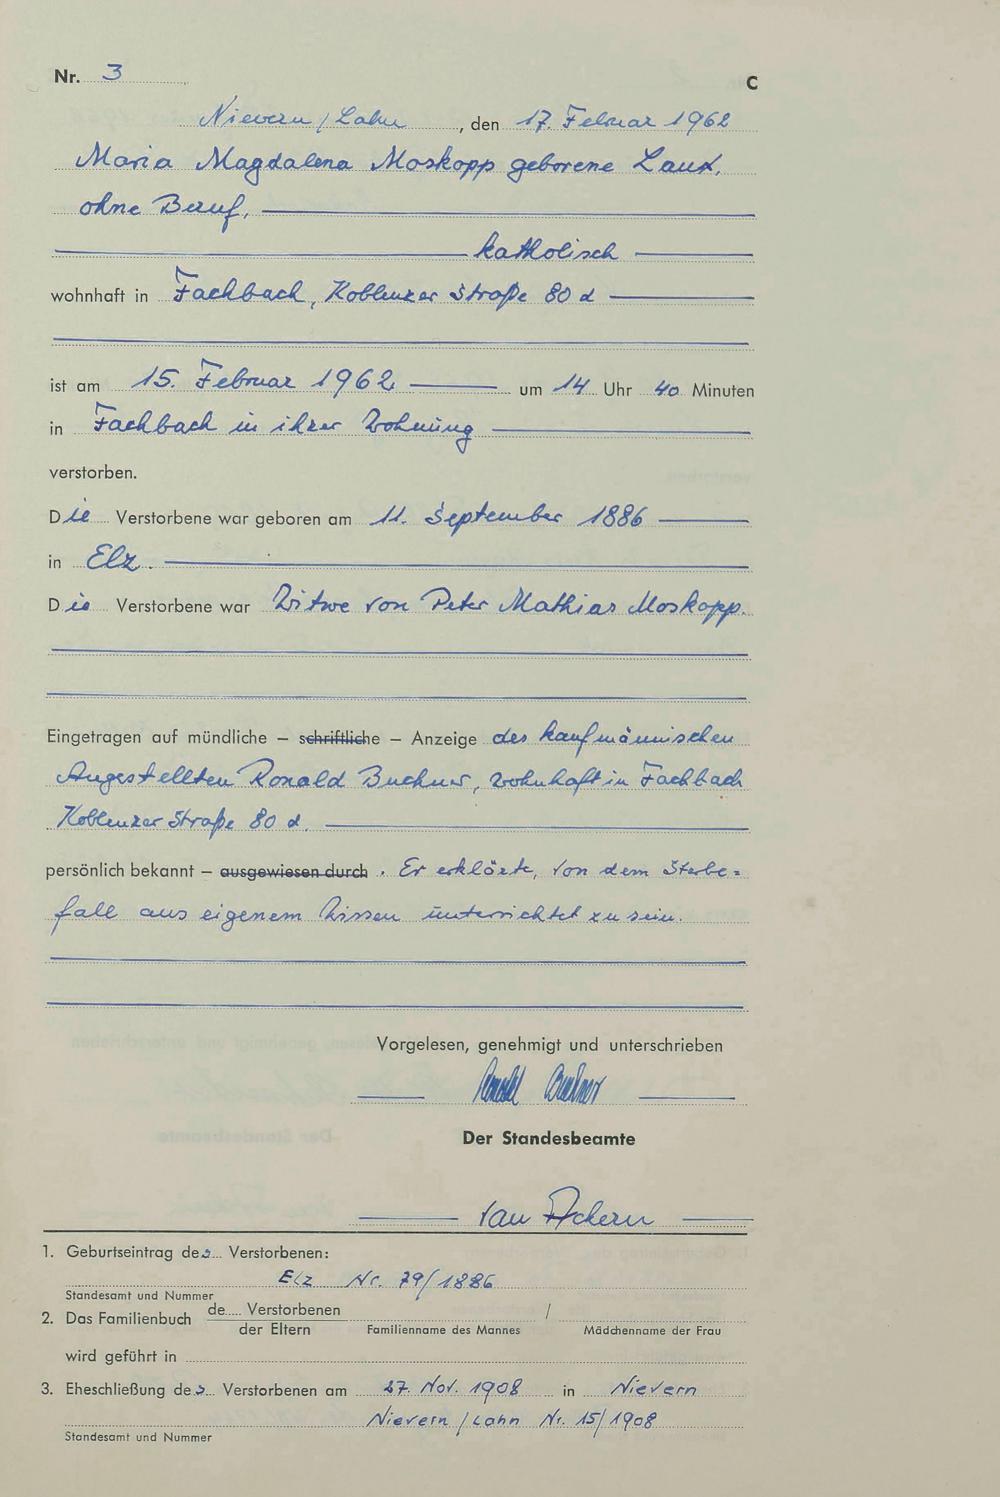 Nr. 3
C
Nievern/Lahn, den 17. Februar 1962
Maria Magdalena Moskopp geborene Laux,
ohne Beruf,
katholisch
wohnhaft in Fachbach, Koblenzer Straße 80 d
ist am 15. Februar 1962 um 14 Uhr 40 Minuten
in Fachbach in ihrer Wohnung
verstorben.
Die Verstorbene war geboren am 11. September 1886
in Elz.
Die Verstorbene war Witwe von Peter Mathias Moskopp.
Eingetragen auf mündliche – schriftliche – Anzeige des kaufmännischen
Angestellten Ronald Buchner, wohnhaft in Fachbach
Koblenzer Straße 80 d.
persönlich bekannt – ausgewiesen durch. Er erklärte, von dem Sterbe=
fall aus eigenem Wissen unterrichtet zu sein.
Vorgelesen, genehmigt und unterschrieben
Ronald Buchner
Der Standesbeamte
van Ackern
1. Geburtseintrag des Verstorbenen:
Elz Nr. 79/1886
Standesamt und Nummer
2. Das Familienbuch de..... Verstorbenen /
der Eltern Familienname des Mannes Mädchenname der Frau
wird geführt in
3. Eheschließung des Verstorbenen am 27. Nov. 1908 in Nievern
Nievern/Lahn Nr. 15/1908
Standesamt und Nummer